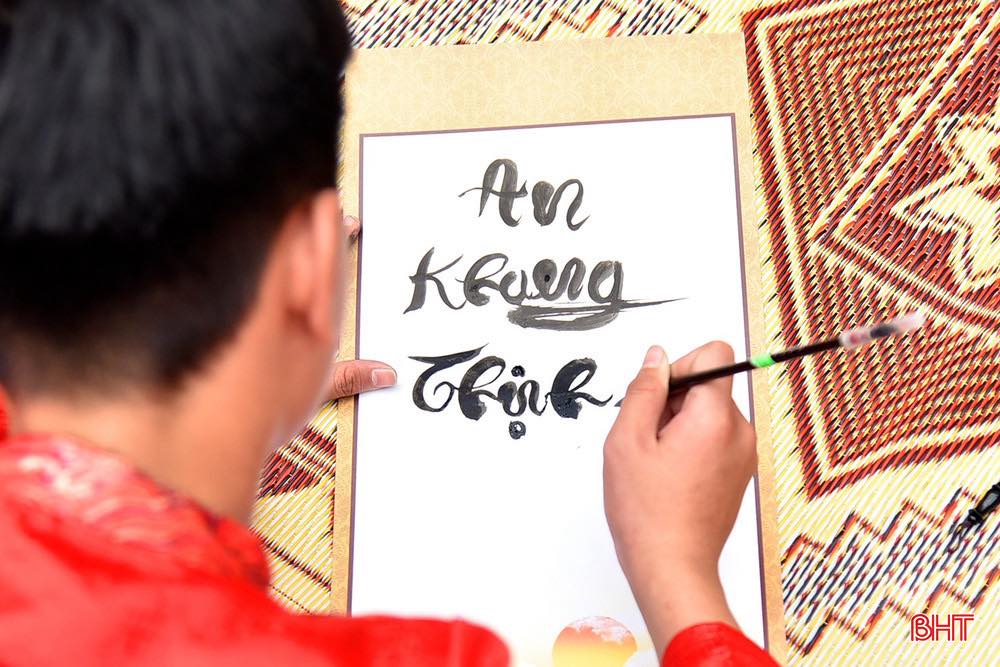 An
Khang
Thịnh
BHT